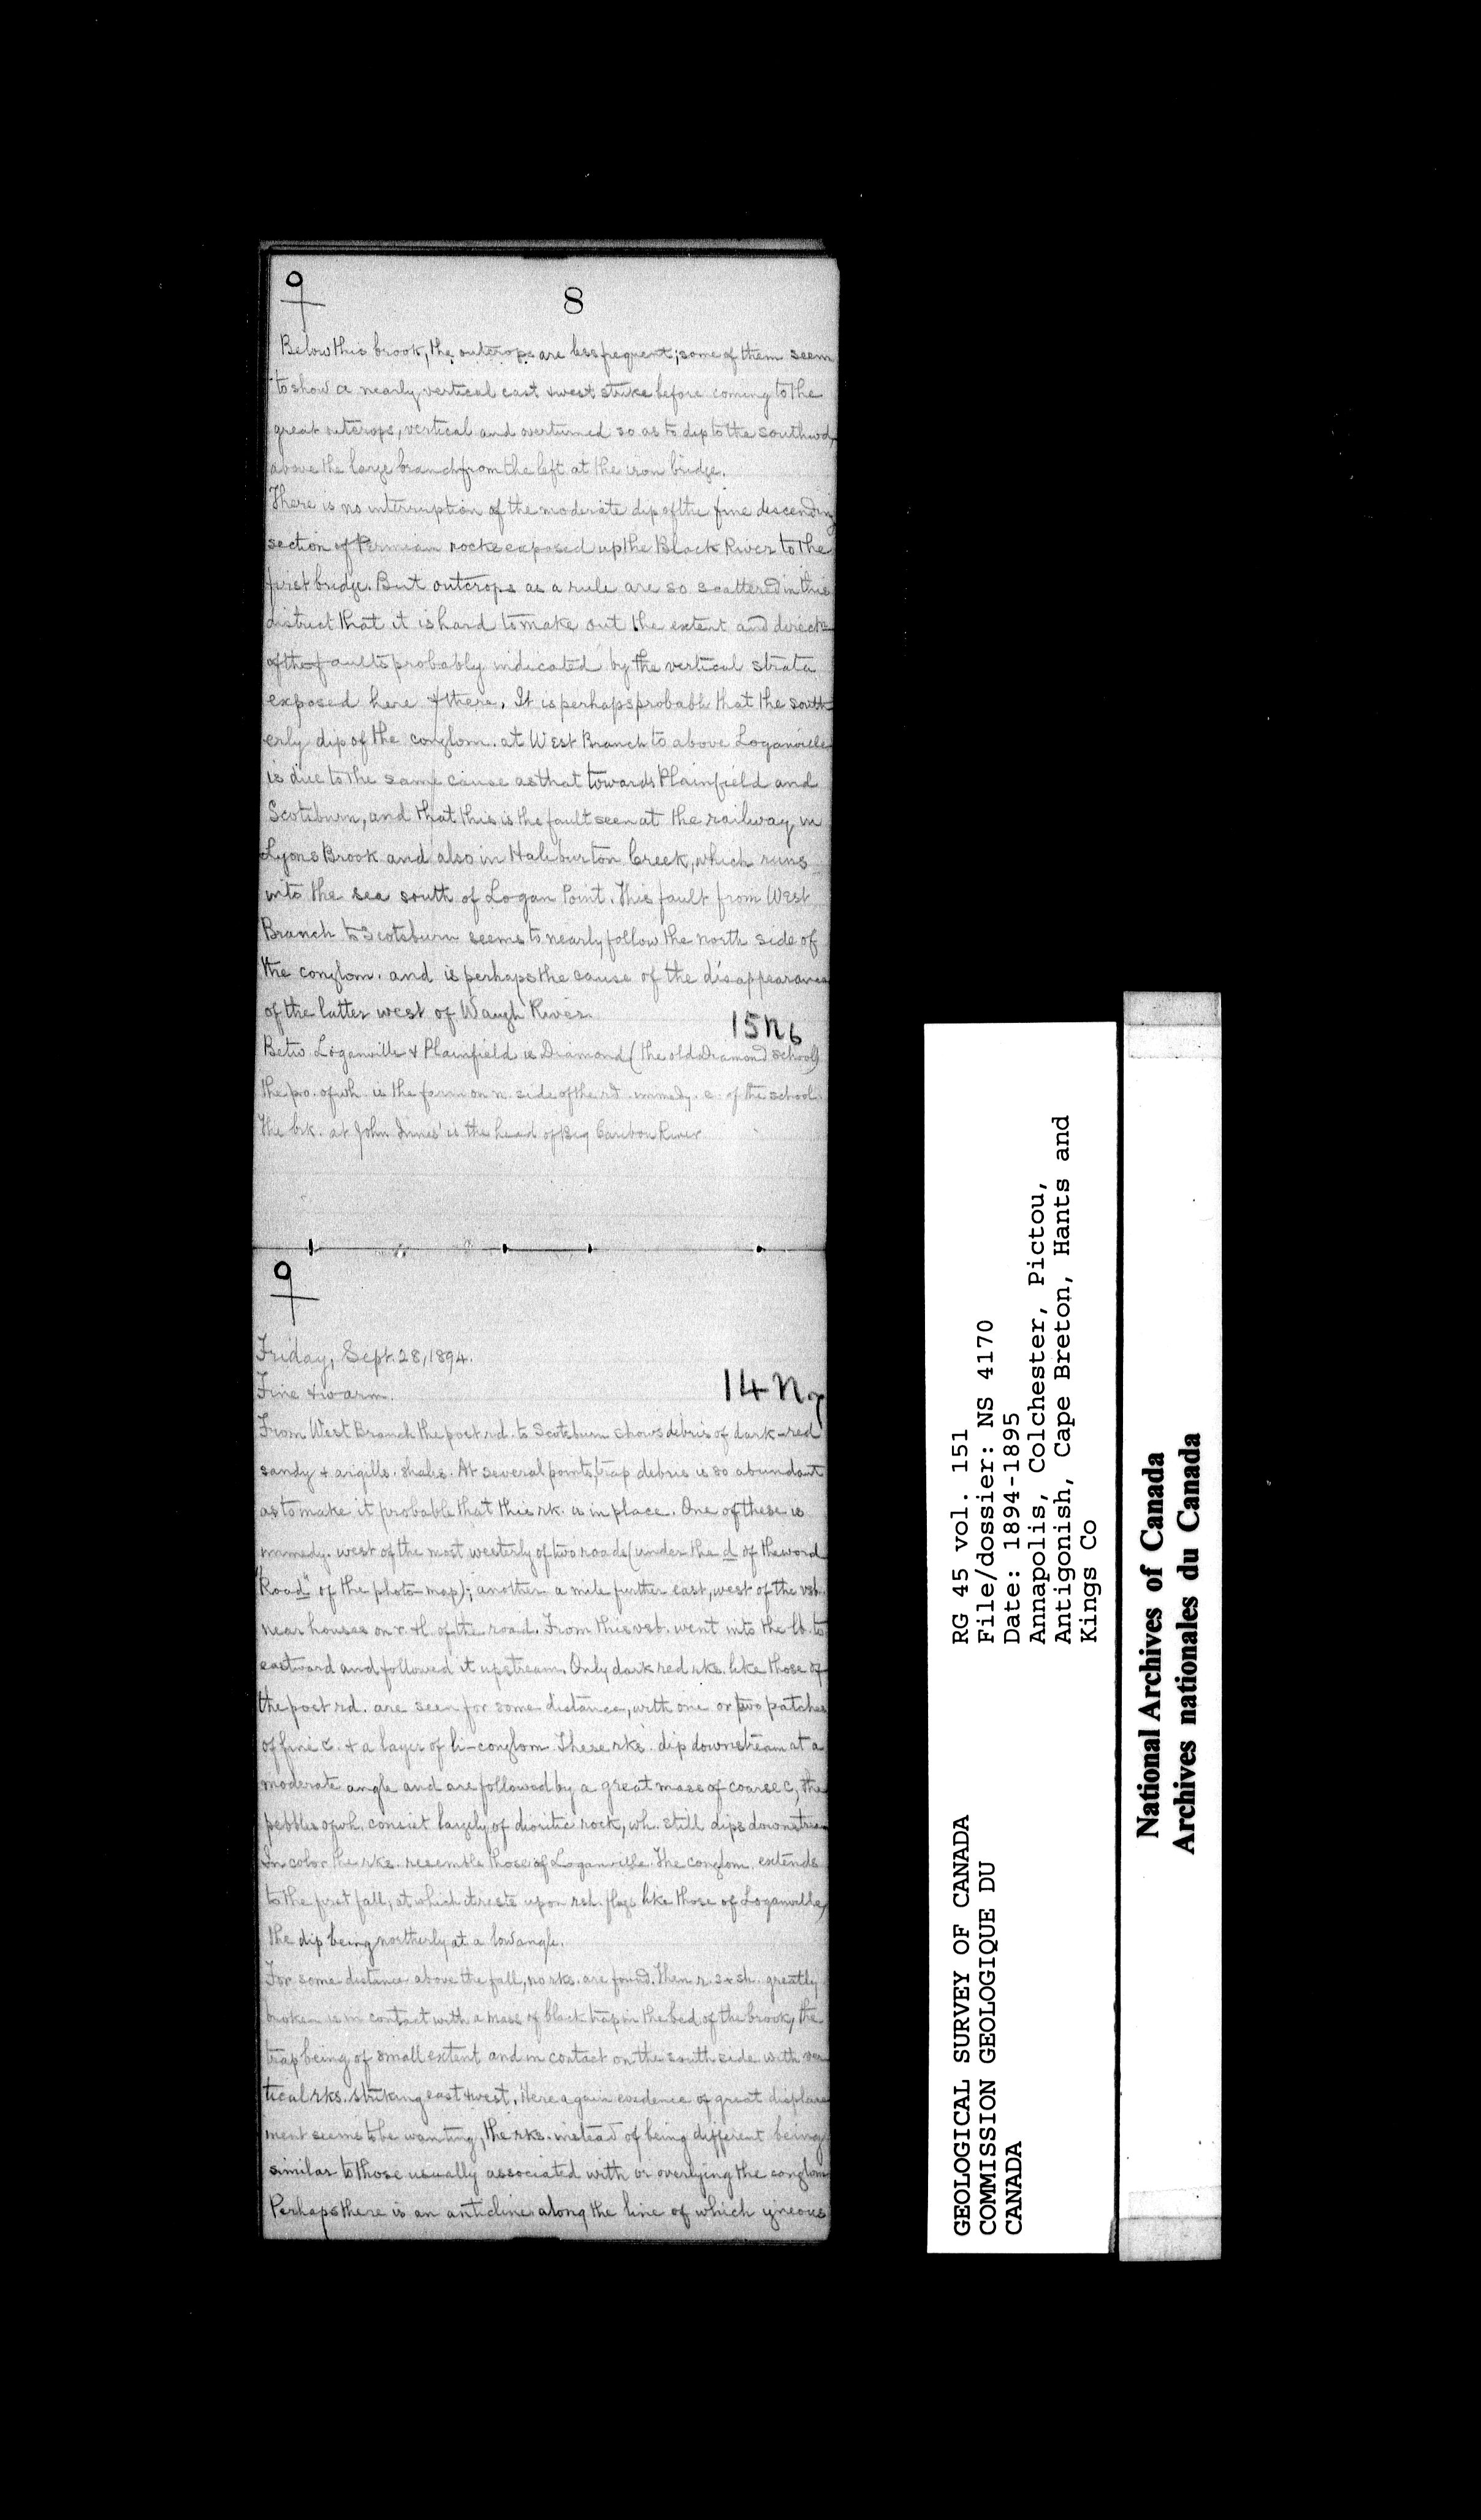 8
Below this brook, the outcrops are less frequent; some of them seem
to show a nearly vertical east & west strike before coming to the
great outcrops, vertical and overturned so as to dip to the southwd,
above the large branch from the left at the iron bridge.
There is no interruption of the moderate dip of the fine descending
section of Permian rocks exposed up the Black River to the
first bridge. But outcrops as a rule are so scattered in this
district that it is hard to make out the extent and directn
of the faults probably indicated by the vertical strata
exposed here & there. It is perhaps probable that the south-
erly dip of the conglom. at West Branch to above Loganville
is due to the same cause as that towards Plainfield and
Scotsburn, and that this is the fault seen at the railway in
Lyons Brook and also in Haliburton Creek, which runs
into the sea south of Logan Point. This fault from West
Branch to Scotsburn seems to nearly follow the north side of
the conglom. and is perhaps the cause of the disappearance
of the latter west of Waugh River.
15 n 6
Betw. Loganville & Plainfield is Diamond (the old Diamond School)
the p.o. of wh. is the farm on n. side of the rd. immedy. e. of the school.
The brk. at John Innes' is the head of Big Caribou River
Friday, Sept. 28, 1894.
Fine & warm.
14 n 7
From West Branch the post rd. to Scotsburn shows debris of dark-red
sandy & argills. shales. At several points, trap debris is so abundant
as to make it probable that this rk. is in place. One of these is
immedy. west of the most westerly of two roads (under the d of the word
"Road" of the photo-map); another a mile further east, west of the vsb.
near houses on r. & l. of the road. From this vsb. went into the lb. to
eastward and followed it upstream. Only dark red rks. like those of
the post rd. are seen for some distance, with one or two patches
of fine c. & a layer of li-conglom. These rks. dip downstream at a
moderate angle and are followed by a great mass of coarse c, the
pebbles of wh. consist largely of dioritic rock, wh. still dips downstream
In color the rks. resemble those of Loganville. The conglom. extends
to the first fall, at which it rests upon rdh. flags like those of Loganville,
the dip being northerly at a low angle.
For some distance above the fall, no rks. are found. Then r. s & sh. greatly
broken is in contact with a mass of black trap in the bed of the brook, the
trap being of small extent and in contact on the south side with ver-
tical rks. striking east & west. Here again evidence of great displace-
ment seems to be wanting, the rks. instead of being different being
similar to those usually associated with or overlying the conglom.
Perhaps there is an anticline along the line of which igneous
GEOLOGICAL SURVEY OF CANADA
COMMISSION GEOLOGIQUE DU
CANADA
RG 45 vol. 151
File/dossier: NS 4170
Date: 1894-1895
Annapolis, Colchester, Pictou,
Antigonish, Cape Breton, Hants and
Kings Co
National Archives of Canada
Archives nationales du Canada